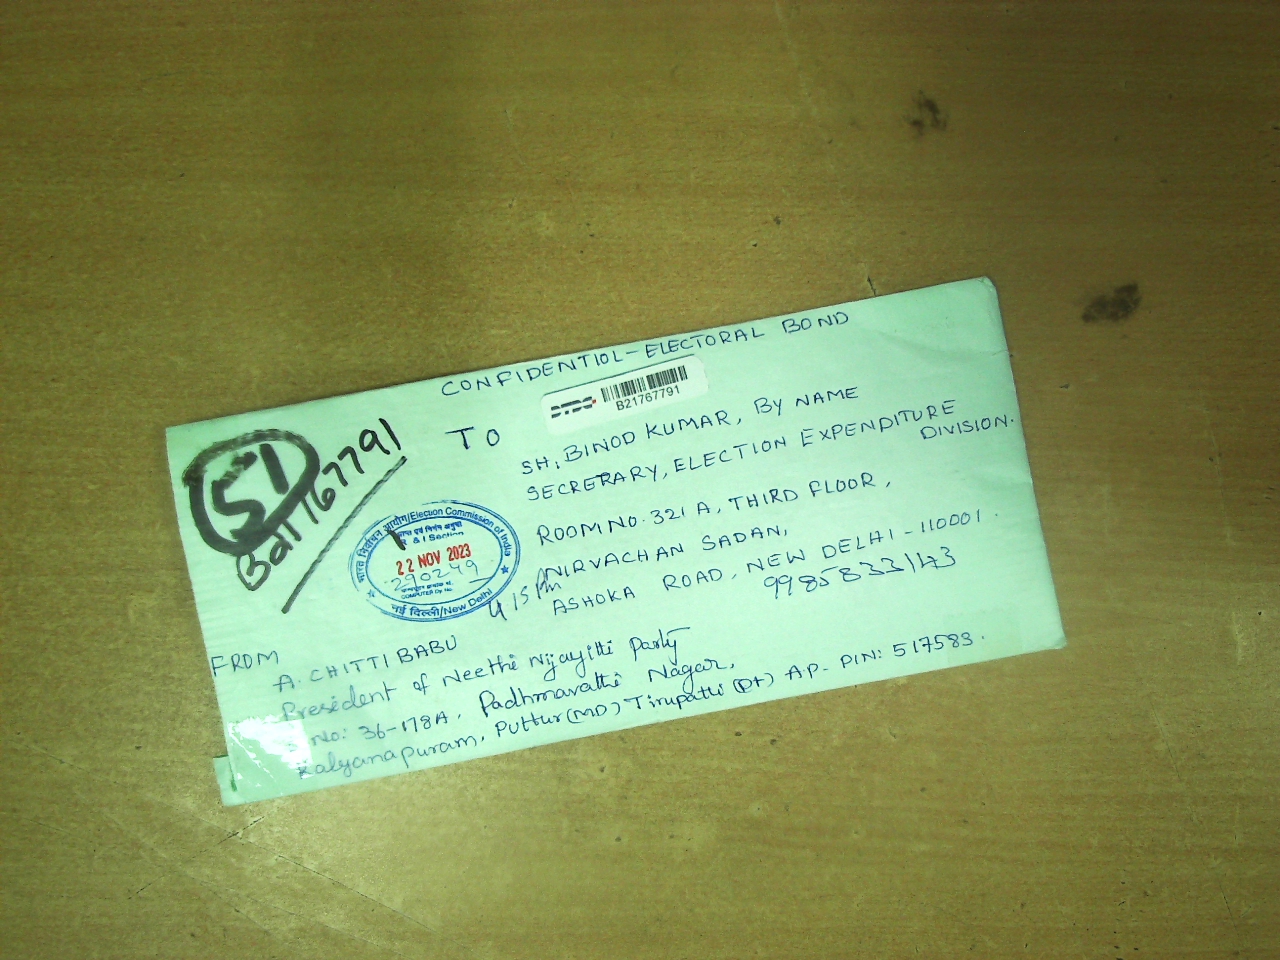 CONFIDENTIOL - ELECTORAL BOND
DTDC
B21767791
51
B21767791
TO
SH; BINOD KUMAR, BY NAME
SECRERARY, ELECTION EXPENDITURE
DIVISION.
ROOM NO. 321 A, THIRD FLOOR,
NIRVACHAN SADAN,
ASHOKA ROAD, NEW DELHI - 110001.
9985833143
भारत निर्वाचन आयोग/Election Commission of India
& I Section
22 NOV 2023
290249
COMPUTER Dy. No.
नई दिल्ली/New Delhi
4 15 Pm
FROM
A. CHITTIBABU
President of Neethi Nijayithi Party
No: 36-178A, Padhmavathi Nagar,
Kalyanapuram, Puttur (MD) Tirupathi (Dt) AP- PIN: 517583.